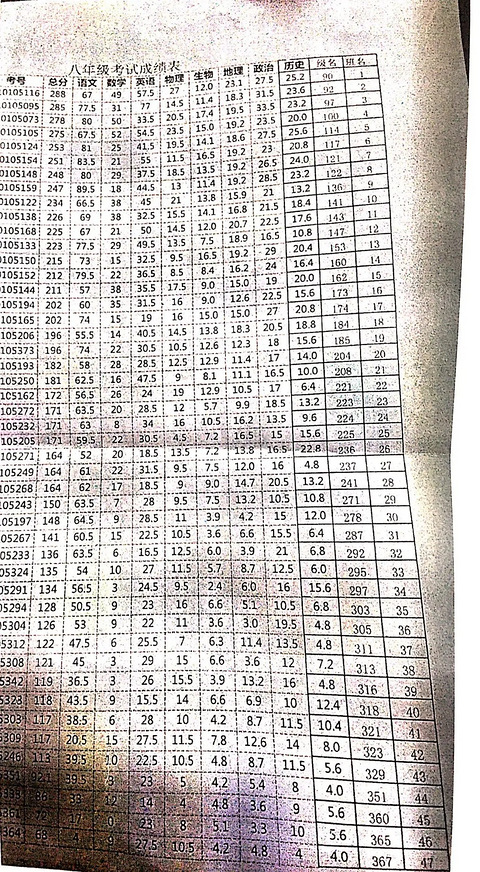 八年级考试成绩表
考号 总分 语文 数学 英语 物理 生物 地理 政治 历史 级名 班名
0105116 288 67 49 57.5 27 12.0 23.1 27.5 25.2 90 1
0105095 285 77.5 31 77 14.5 11.4 18.3 31.5 23.6 92 2
0105073 278 80 50 33.5 20.5 17.4 19.5 33.5 23.2 97 3
0105105 275 67.5 52 54.5 23.5 15.0 19.2 23.5 20.0 100 4
0105124 253 81 25 41.5 19.5 14.1 18.6 27.5 25.6 114 5
0105154 251 83.5 21 55 11.5 16.5 19.2 23 20.8 117 6
0105148 248 80 29 37.5 18.5 13.5 19.2 26.5 24.0 121 7
0105159 247 89.5 18 44.5 13 11.4 19.2 28.5 23.2 122 8
0105122 234 66.5 38 45 21 13.8 15.9 21 13.2 136 9
0105138 226 69 38 32.5 15.5 14.1 16.8 21.5 18.4 141 10
0105168 225 67 21 50 14.5 12.0 20.7 22.5 17.6 143 11
0105133 223 77.5 29 49.5 13.5 7.5 18.9 16.5 10.8 147 12
0105150 215 73 15 32.5 9.5 16.5 19.2 29 20.4 153 13
0105152 212 79.5 22 36.5 8.5 8.4 16.2 24 16.4 160 14
0105144 211 57 38 35.5 17.5 9.0 15.0 19 20.0 162 15
0105194 202 60 35 31.5 16 9.0 12.6 22.5 15.6 173 16
105165 202 74 15 19 16 15.0 15.0 27 20.8 174 17
105206 196 55.5 14 40.5 14.5 13.8 18.3 20.5 18.8 184 18
105373 196 74 22 30.5 10.5 12.6 12.3 18 15.6 185 19
105193 182 58 28 28.5 12.5 12.9 11.4 17 14.0 204 20
105250 181 62.5 16 47.5 9 8.1 11.1 16.5 10.0 208 21
105162 172 56.5 26 24 19 12.9 10.5 17 6.4 221 22
105272 171 63.5 20 28.5 12 5.7 9.9 18.5 13.2 223 23
105232 171 63 8 34 16 10.5 16.2 13.5 9.6 224 24
105205 171 59.5 22 30.5 4.5 7.2 16.5 15 15.6 225 25
105271 164 52 20 18.5 13.5 7.2 13.8 16.5 22.8 236 26
105249 164 61 22 31.5 9.5 7.5 12.0 16 4.8 237 27
105268 164 62 17 18.5 9 9.0 14.7 20.5 13.2 241 28
105243 150 63.5 7 28 9.5 7.5 13.2 10.5 10.8 271 29
05197 148 64.5 9 28.5 11 3.9 4.2 15 12.0 278 30
05267 141 60.5 15 22.5 10.5 3.6 6.6 15.5 6.4 287 31
05233 136 63.5 6 16.5 12.5 6.0 3.9 21 6.8 292 32
05324 135 54 10 27 11.5 5.7 8.7 12.5 6.0 295 33
05291 134 56.5 3 24.5 9.5 2.4 6.0 16 15.6 297 34
05294 128 50.5 9 23 16 6.6 5.1 10.5 6.8 303 35
05304 126 53 9 22 11 3.6 3.0 19.5 4.8 305 36
05312 122 47.5 6 25.5 7 6.3 11.4 13.5 4.8 311 37
5308 121 45 3 29 15 6.6 3.6 12 7.2 313 38
5342 119 36.5 3 26 15.5 3.9 13.2 16 4.8 316 39
5323 118 43.5 9 15.5 14 6.6 6.9 10 12.4 318 40
5303 117 38.5 6 28 10 4.2 8.7 11.5 10.4 321 41
5309 117 20.5 15 27.5 11.5 7.8 12.6 14 8.0 323 42
5246 113 39.5 10 22.5 10.5 4.8 8.7 11.5 5.6 329 43
39.5 8 23 5 4.2 5.4 8 4.0 351 44
86 33 12 14 4 4.8 3.6 9 5.6 360 45
17 0 23 8 5.1 3.3 10 5.6 365 46
68 4 9 27.5 10.5 4.2 4.8 4 4.0 367 47